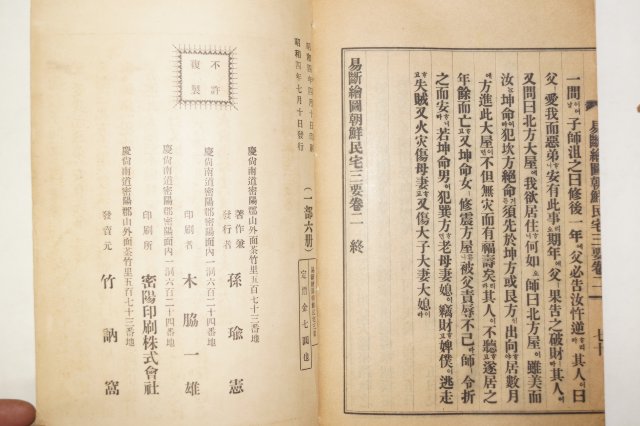 易斷繪圖朝鮮民宅三要卷二 七十
一問子師沮之曰修後一年에父必告汝忤逆하리라其人이曰
父愛我而惡弟하니安有此事리오期年에父果告之破財하니其人이
又問曰北方大屋에我欲居住하니何如오師曰北方屋이雖美而
汝는坤命이라犯坎方絕命하니須先於坤方或艮方에出向하야居數月
에方進此大屋이면不但無災而有福壽矣라하니其人이不聽하고遂居之
年餘而亡하고又坤命女修震方屋하고被父責辱不已라師令折
之而安하니라若坤命男이犯巽方이면老母妻媳이竊財하고婢僕이逃走
失賊하고又火災傷母妻하고又傷大子大妻大媳이라
易斷繪圖朝鮮民宅三要卷二 終
昭和四年七月十日發行
(一部六册)
不許
複製
慶尙南道密陽郡山外面茶竹里五百七十三番地
著作兼
發行者 孫瑜憲
慶尙南道密陽郡密陽面內一洞六百二十四番地
印刷者 木脇一雄
慶尙南道密陽郡密陽面內一洞六百二十四番地
印刷所 密陽印刷株式會社
慶尙南道密陽郡山外面茶竹里五百七十三番地
發賣元 竹訥窩